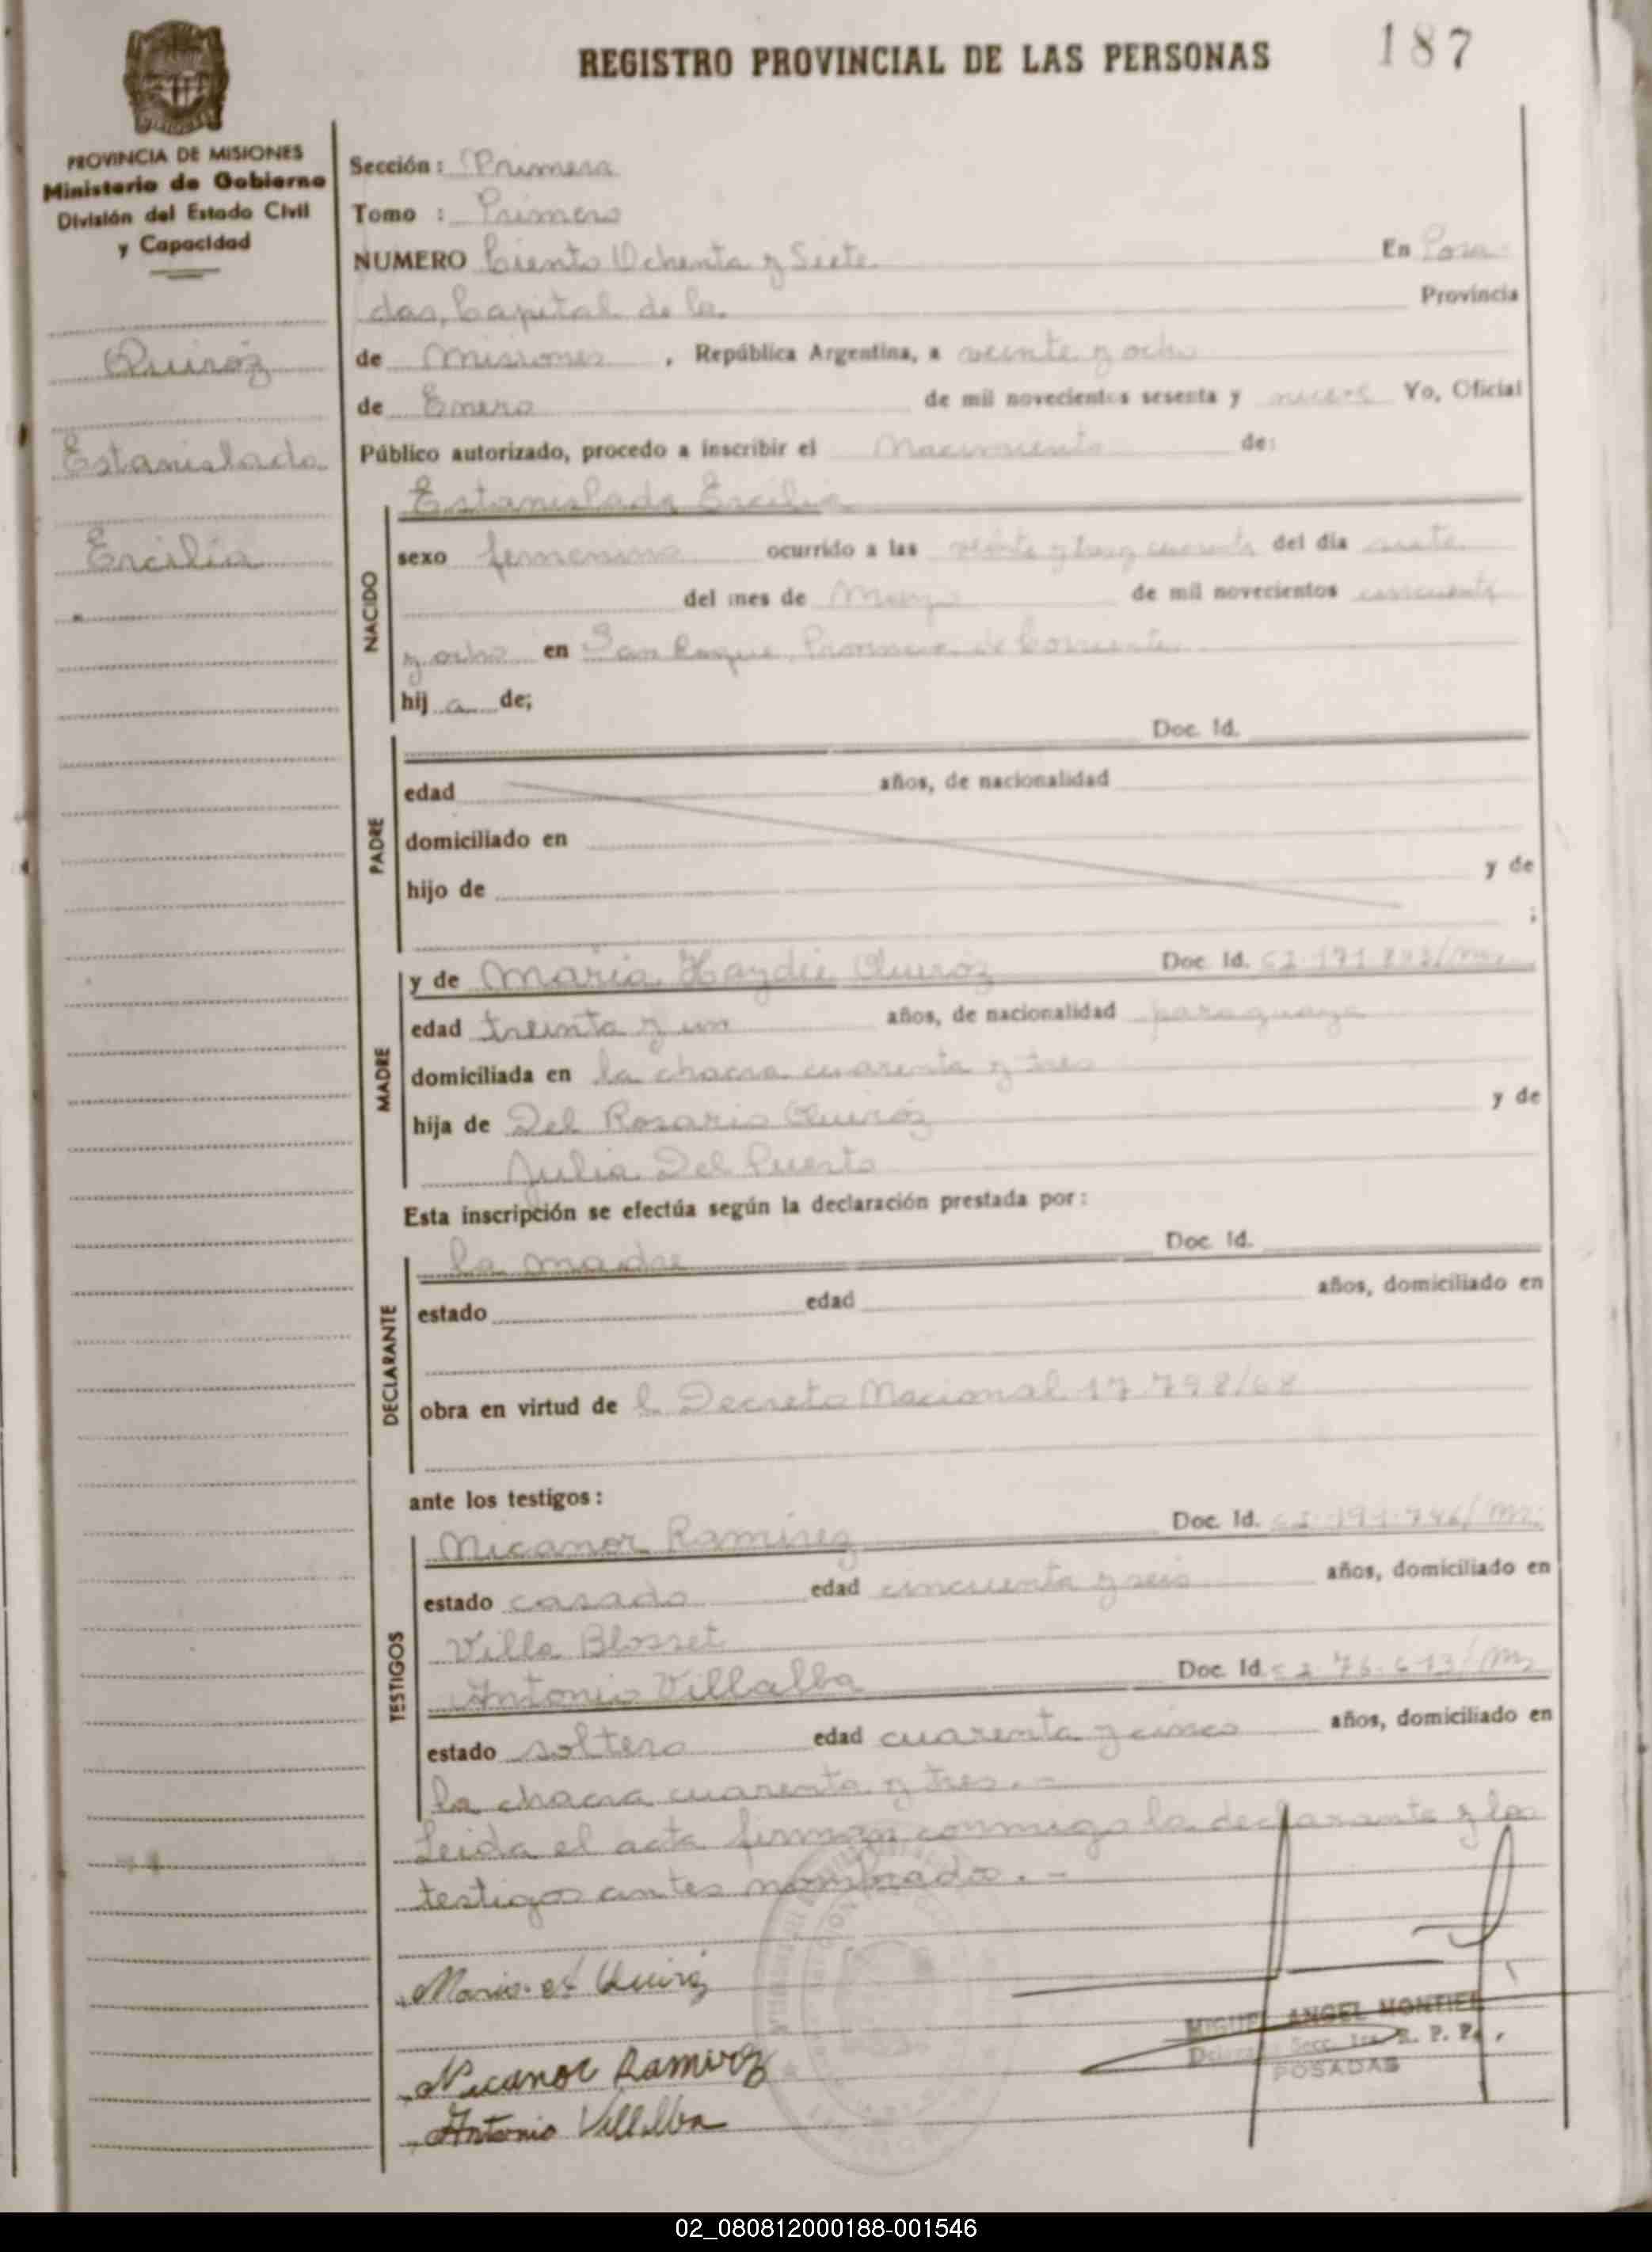 187
REGISTRO PROVINCIAL DE LAS PERSONAS
PROVINCIA DE MISIONES
Ministerio de Gobierno
División del Estado Civil
y Capacidad
Quiróz
Estanislada
Ercilia
Sección: Primera
Tomo : Primero
NUMERO Ciento Ochenta y Siete En Posa-
das, Capital de la Provincia
de Misiones , República Argentina, a veinte y ocho
de Enero de mil novecientos sesenta y nueve Yo, Oficial
Público autorizado, procedo a inscribir el Nacimiento de:
NACIDO
Estanislada Ercilia
sexo femenino ocurrido a las veinte y tres y cuarenta del día siete
del mes de Marzo de mil novecientos cincuenta
y ocho en San Roque, Provincia de Corrientes
hij a de;
PADRE
Doc. Id.
edad años, de nacionalidad
domiciliado en
hijo de y de
;
MADRE
y de María Haydée Quiróz Doc. Id. CI
edad treinta y un años, de nacionalidad paraguaya
domiciliada en la chacra cuarenta y tres
hija de Del Rosario Quiróz y de
Julia Del Puerto
Esta inscripción se efectúa según la declaración prestada por:
DECLARANTE
la madre Doc. Id.
estado edad años, domiciliado en
obra en virtud de l Decreto Nacional 17.798/68
ante los testigos:
TESTIGOS
Nicanor Ramírez Doc. Id. CI
estado casado edad cincuenta y seis años, domiciliado en
Villa Blosset
Antonio Villalba Doc. Id. CI
estado soltero edad cuarenta y cinco años, domiciliado en
la chacra cuarenta y tres. -
Leida el acta firman conmigo la declarante y los
testigos antes nombrados. -
Nicanor Ramirez
Antonio Villalba
MIGUEL ANGEL MONTIEL
R. P. P.
POSADAS
02_080812000188-001546